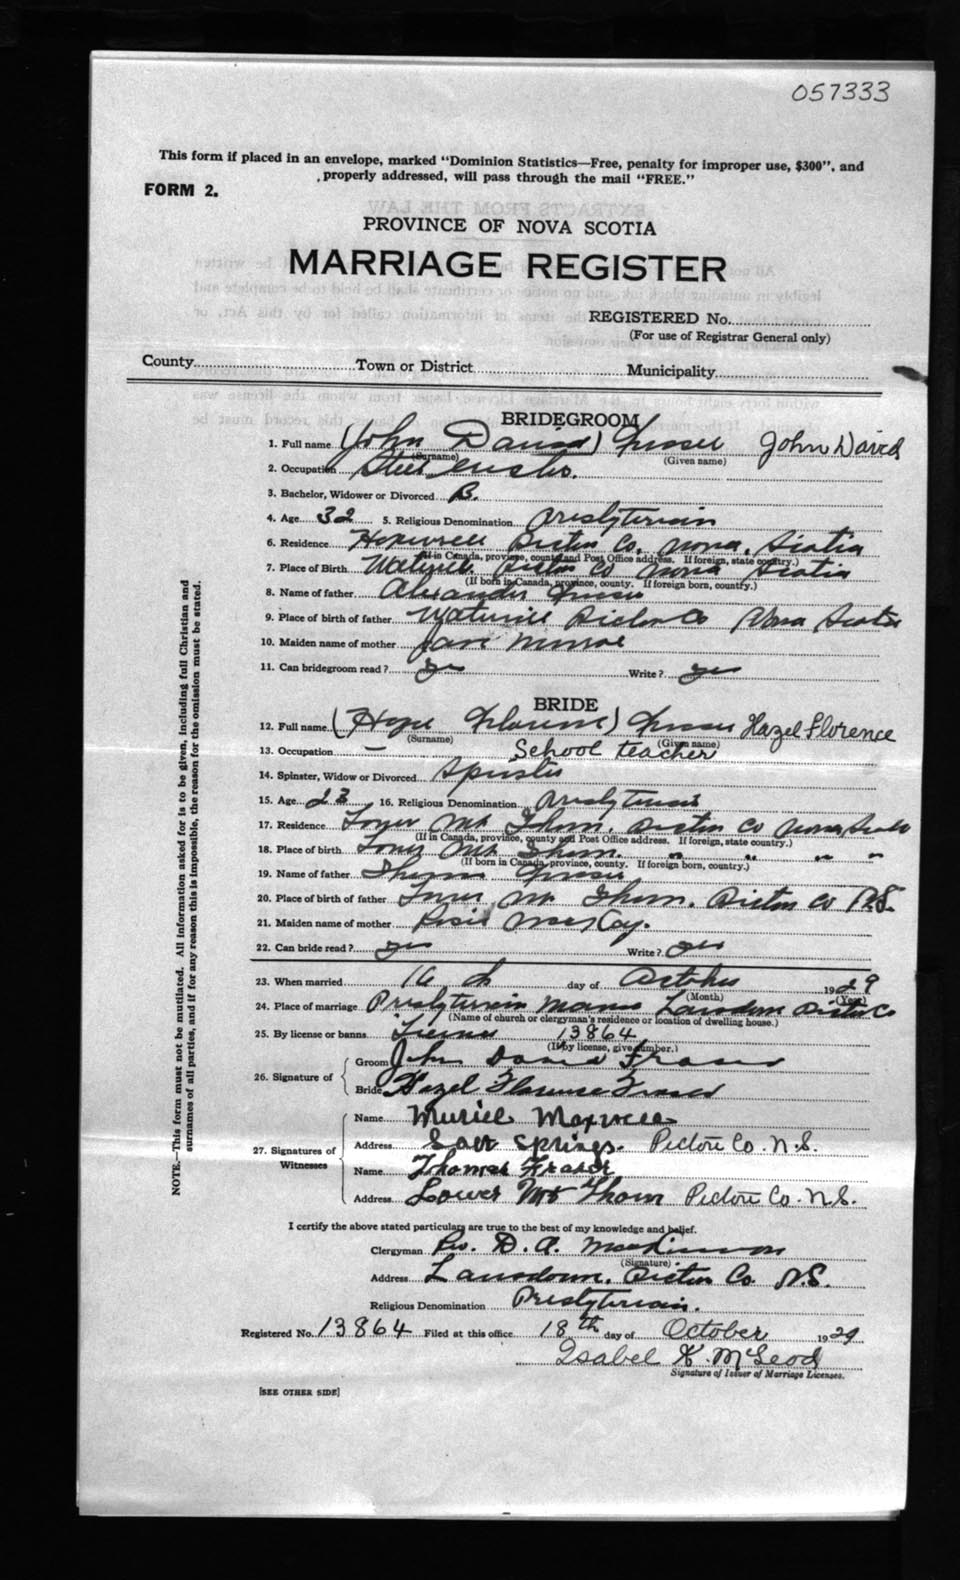 057333
This form if placed in an envelope, marked "Dominion Statistics—Free, penalty for improper use, $300", and
properly addressed, will pass through the mail "FREE."
FORM 2.
PROVINCE OF NOVA SCOTIA
MARRIAGE REGISTER
REGISTERED No.
(For use of Registrar General only)
County Town or District Municipality
BRIDEGROOM
1. Full name (John David) Fraser John David
(Surname) (Given name)
2. Occupation
3. Bachelor, Widower or Divorced B.
4. Age 32 5. Religious Denomination Presbyterian
6. Residence Hopewell Pictou Co. Nova Scotia
(If in Canada, province, county and Post Office address. If foreign, state country.)
7. Place of Birth Pictou Co Nova Scotia
(If born in Canada, province, county. If foreign born, country.)
8. Name of father Alexander Fraser
9. Place of birth of father Pictou Co Nova Scotia
10. Maiden name of mother Jane Munroe
11. Can bridegroom read? yes Write? yes
BRIDE
12. Full name (Hope Florence) Fraser Hazel Florence
(Surname) (Given name)
13. Occupation — School teacher
14. Spinster, Widow or Divorced Spinster
15. Age 23 16. Religious Denomination Presbyterian
17. Residence Lower Mt Thom, Pictou Co Nova Scotia
(If in Canada, province, county and Post Office address. If foreign, state country.)
18. Place of birth Lower Mt Thom. " " " "
(If born in Canada, province, county. If foreign born, country.)
19. Name of father Thomas Fraser
20. Place of birth of father Lower Mt Thom. Pictou Co N.S.
21. Maiden name of mother MacKay.
22. Can bride read? yes Write? yes
23. When married 16 th day of October 1929
(Month) (Year)
24. Place of marriage Presbyterian Manse Lansdowne Pictou Co
(Name of church or clergyman's residence or location of dwelling house.)
25. By license or banns License 13864
(If by license, give number.)
26. Signature of Groom John David Fraser
Bride Hazel Florence Fraser
27. Signatures of Witnesses
Name Muriel Maxwell
Address Salt Springs. Pictou Co. N.S.
Name Thomas Fraser
Address Lower Mt Thom Pictou Co. N.S.
I certify the above stated particulars are true to the best of my knowledge and belief.
Clergyman Rev. D. A. MacKinnon
(Signature)
Address Lansdowne, Pictou Co. N.S.
Religious Denomination Presbyterian.
Registered No. 13864 Filed at this office 18th day of October 1929
Isabel K. McLeod
Signature of Issuer of Marriage Licenses.
[SEE OTHER SIDE]
NOTE.—This form must not be mutilated. All information asked for is to be given, including full Christian and
surnames of all parties, and if for any reason this is impossible, the reason for the omission must be stated.